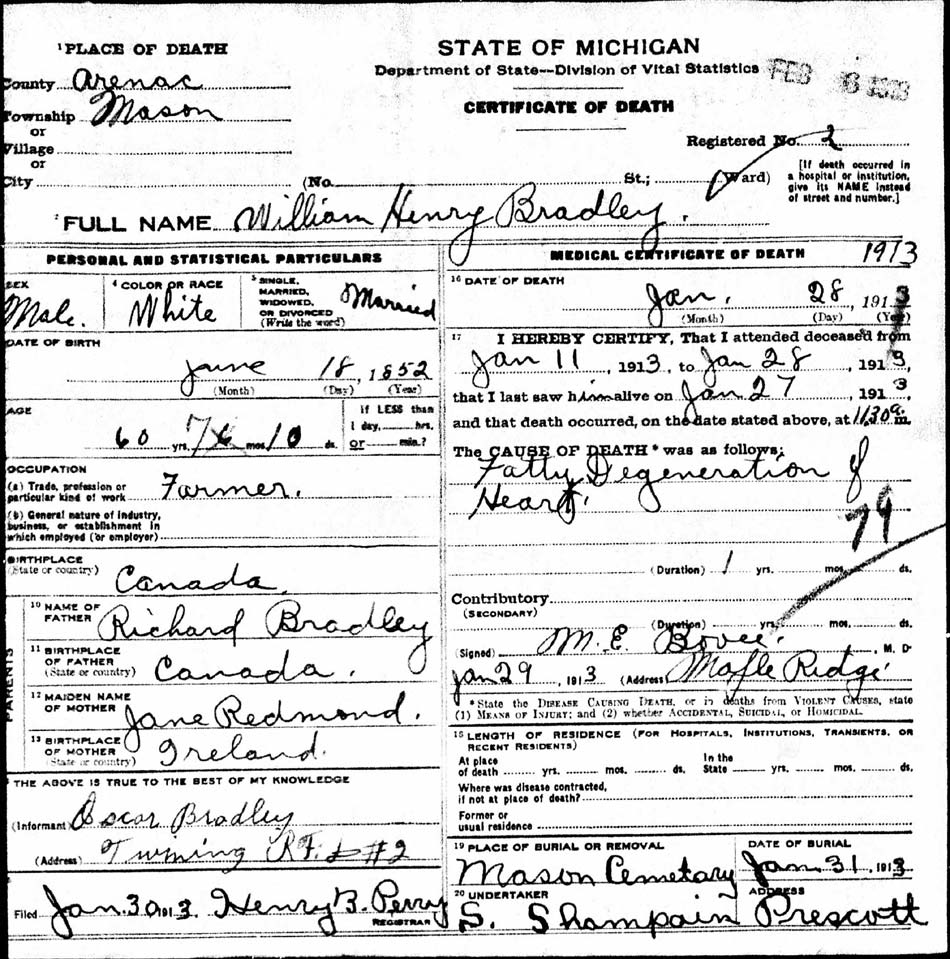 ¹PLACE OF DEATH
County Arenac
Township Mason
or
Village
or
City
STATE OF MICHIGAN
Department of State—Division of Vital Statistics
FEB 6 1913
CERTIFICATE OF DEATH
Registered No. 2
(No. St.; Ward)
[If death occurred in
a hospital or institution,
give its NAME instead
of street and number.]
² FULL NAME William Henry Bradley
PERSONAL AND STATISTICAL PARTICULARS
SEX
Male.
⁴ COLOR OR RACE
White
⁵ SINGLE,
MARRIED,
WIDOWED,
OR DIVORCED
(Write the word)
Married
DATE OF BIRTH
June 18, 1852
(Month) (Day) (Year)
AGE
60 yrs. 7 mos. 10 ds.
If LESS than
1 day, hrs.
or min.?
OCCUPATION
(a) Trade, profession or
particular kind of work Farmer.
(b) General nature of industry,
business, or establishment in
which employed (or employer)
BIRTHPLACE
(State or country) Canada
PARENTS
¹⁰ NAME OF
FATHER Richard Bradley
¹¹ BIRTHPLACE
OF FATHER
(State or country) Canada.
¹² MAIDEN NAME
OF MOTHER Jane Redmond.
¹³ BIRTHPLACE
OF MOTHER
(State or country) Ireland.
THE ABOVE IS TRUE TO THE BEST OF MY KNOWLEDGE
(Informant) Oscar Bradley
(Address) Twining R.F.D #2
Filed Jan. 30 1913. Henry B. Perry
REGISTRAR
MEDICAL CERTIFICATE OF DEATH 1913
¹⁶ DATE OF DEATH
Jan. 28, 1913
(Month) (Day) (Year)
¹⁷ I HEREBY CERTIFY, That I attended deceased from
Jan 11, 1913, to Jan 28, 1913,
that I last saw him alive on Jan 27, 1913
and that death occurred, on the date stated above, at 11.30 a. m.
The CAUSE OF DEATH * was as follows:
Fatty Degeneration of
Heart.
79
(Duration) 1 yrs. mos. ds.
Contributory
(SECONDARY)
(Duration) yrs. mos. ds.
(Signed) M. E. Bovee, M. D.
Jan 29, 1913 (Address) Maple Ridge
*State the DISEASE CAUSING DEATH, or in deaths from VIOLENT CAUSES, state
(1) MEANS OF INJURY; and (2) whether ACCIDENTAL, SUICIDAL, or HOMICIDAL.
¹⁸ LENGTH OF RESIDENCE (FOR HOSPITALS, INSTITUTIONS, TRANSIENTS, OR
RECENT RESIDENTS)
At place
of death yrs. mos. ds.
In the
State yrs. mos. ds.
Where was disease contracted,
if not at place of death?
Former or
usual residence
¹⁹ PLACE OF BURIAL OR REMOVAL
Mason Cemetary
DATE OF BURIAL
Jan. 31, 1913
²⁰ UNDERTAKER
S. Shampain
ADDRESS
Prescott